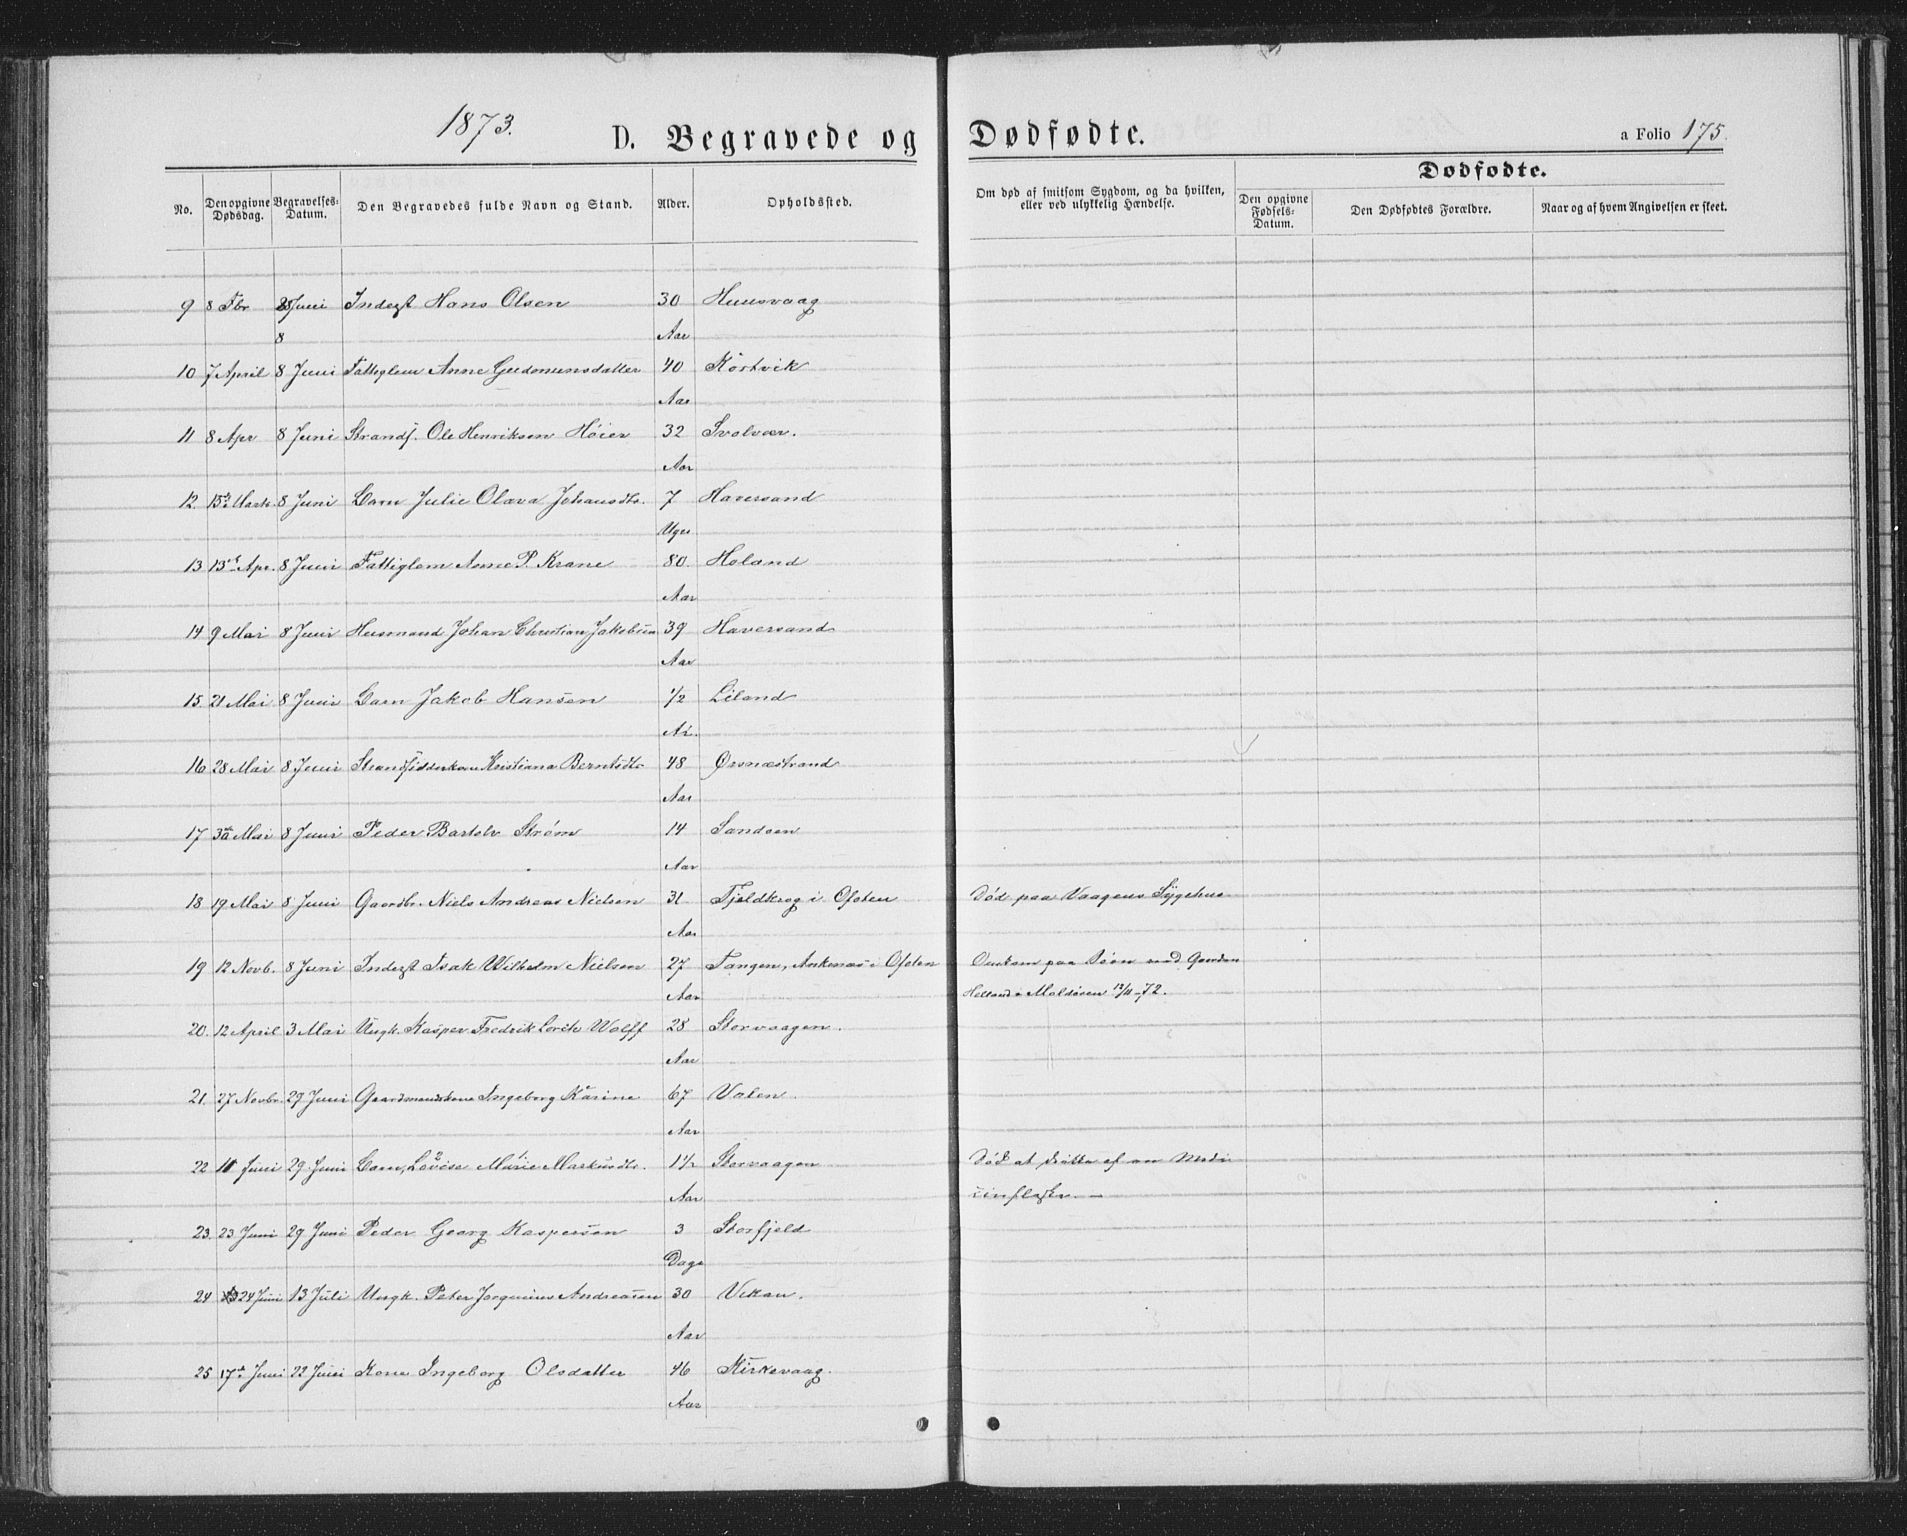 1873. D. Begravede og Dødfødte. a Folio 175.
No. Den opgivne Dødsdag. Begravelses-Datum. Den Begravedes fulde Navn og Stand. Alder. Opholdssted. Om død af smitsom Sygdom, og da hvilken, eller ved ulykkelig Hændelse. Dødfødte. Den opgivne Fødsels-Datum. Den Dødfødtes Forældre. Naar og af hvem Angivelsen er skeet.
9 8 Fbr 8 Juni Inderst Hans Olsen 30 Huusvaag
8 Aar
10 7 April 8 Juni Fattiglem Anne Gudmunsdatter 40 Kortvik
Aar
11 8 Apr 8 Juni Strands. Ole Henriksen Höier 32 Svolvær.
Aar
12. 13de Marts. 8 Juni Barn Julie Olava Johansdtr. 7 Haversand
Uger
13 13de Apr. 8 Juni Fattiglem Anne P. Krane 80. Holand
Aar
14 9 Mai 8 Juni Husmand Johan Christian Jakobsen 39 Haversand
Aar
15. 21 Mai 8 Juni Barn Jakob Hansen 1/2 Liland
Ar.
16 28 Mai 8 Juni Strandsidderkone Kristiana Berntsdtr 48 Ørsnæstrand
Aar
17 3de Mai 8 Juni Peder Bartolv Strøm 14 Sandøen
Aar
18 19 Mai 8 Juni Gaardbr. Niels Andreas Nielsen 31 Fjeldkrog i Ofoten Død paa Vaagens Sygehus
Aar
19 12 Novb. 8 Juni Inderst Isak Wilhelm Nielsen 27 Tangen, Ankenæs i Ofoten Omkom paa Søen ved Gaarden
Aar Helland i Moldøren 12/11-72.
20. 12 April 3 Mai Ungk. Kasper Fredrik Lorch Wolff 28 Storvaagen.
Aar
21. 27 Novbr. 29 Juni Gaardmandskone Ingeborg Karine 67 Valen.
Aar
22 11 Juni 29 Juni Barn, Lovise Marie Markusdtr. 1 1/2 Storvaagen Død at drikke af en Medi-
Aar cinflaske. —
23. 23 Juni 29 Juni Peder Georg Kaspersen 3 Storfjeld
Dage
24 24 Juni 13 Juli Ungk. Peter Jørginius Andreasen 30 Vikan.
Aar
25 17de Juni 22 Juni Kone Ingeborg Olsdatter 46 Kirkevaag.
Aar